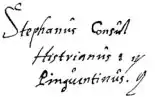 Stephanus Consul
Histrianus :
Pinguentinus.